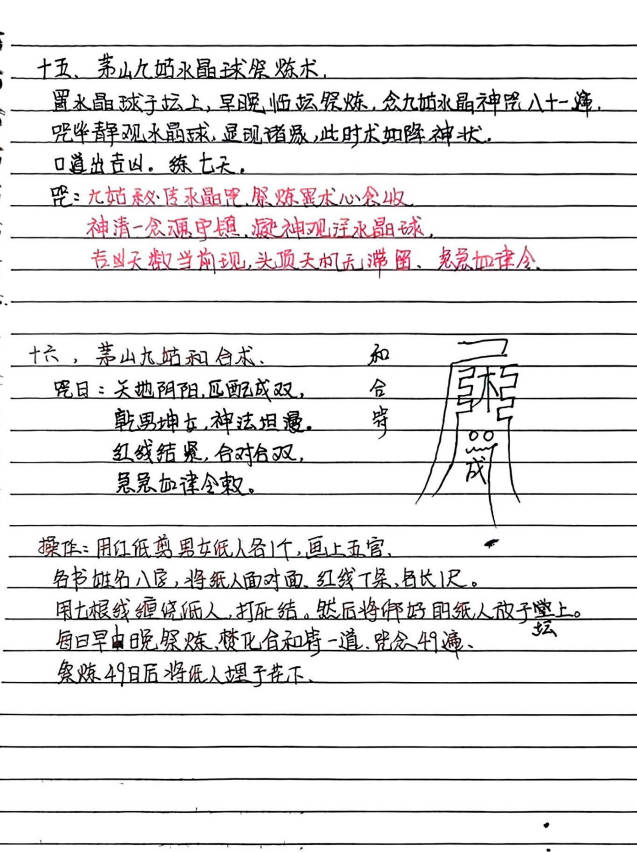 十五、茅山九姑水晶球祭炼术.
置水晶球于坛上,早晚临坛祭炼,念九姑水晶神咒八十一遍.
咒毕静观水晶球,显现诸象,此时术如降神状.
口道出吉凶。练七天。
咒:九姑秘传水晶咒,祭炼異术心念收
神清一念通宇,凝神观注水晶球,
吉凶天数当前现,头顶天机无滞留、急急如律令.
十六,茅山九姑和合术.
和合符
咒曰:天地阴阳,匹配成双,
乾男坤女,神法坦漫。
红线结紧,合对合双,
急急如律令敕。
成
操作:用红纸剪男女纸人各1个,画上五官、
各书姓名八字,将纸人面对面、红线7条,各长1尺。
用七根线缠绕纸人,打死结。然后将绑好的纸人放于坛上。
每日早中晚祭炼、焚化合和符一道、咒念49遍、
祭炼49日后将纸人埋于花下、